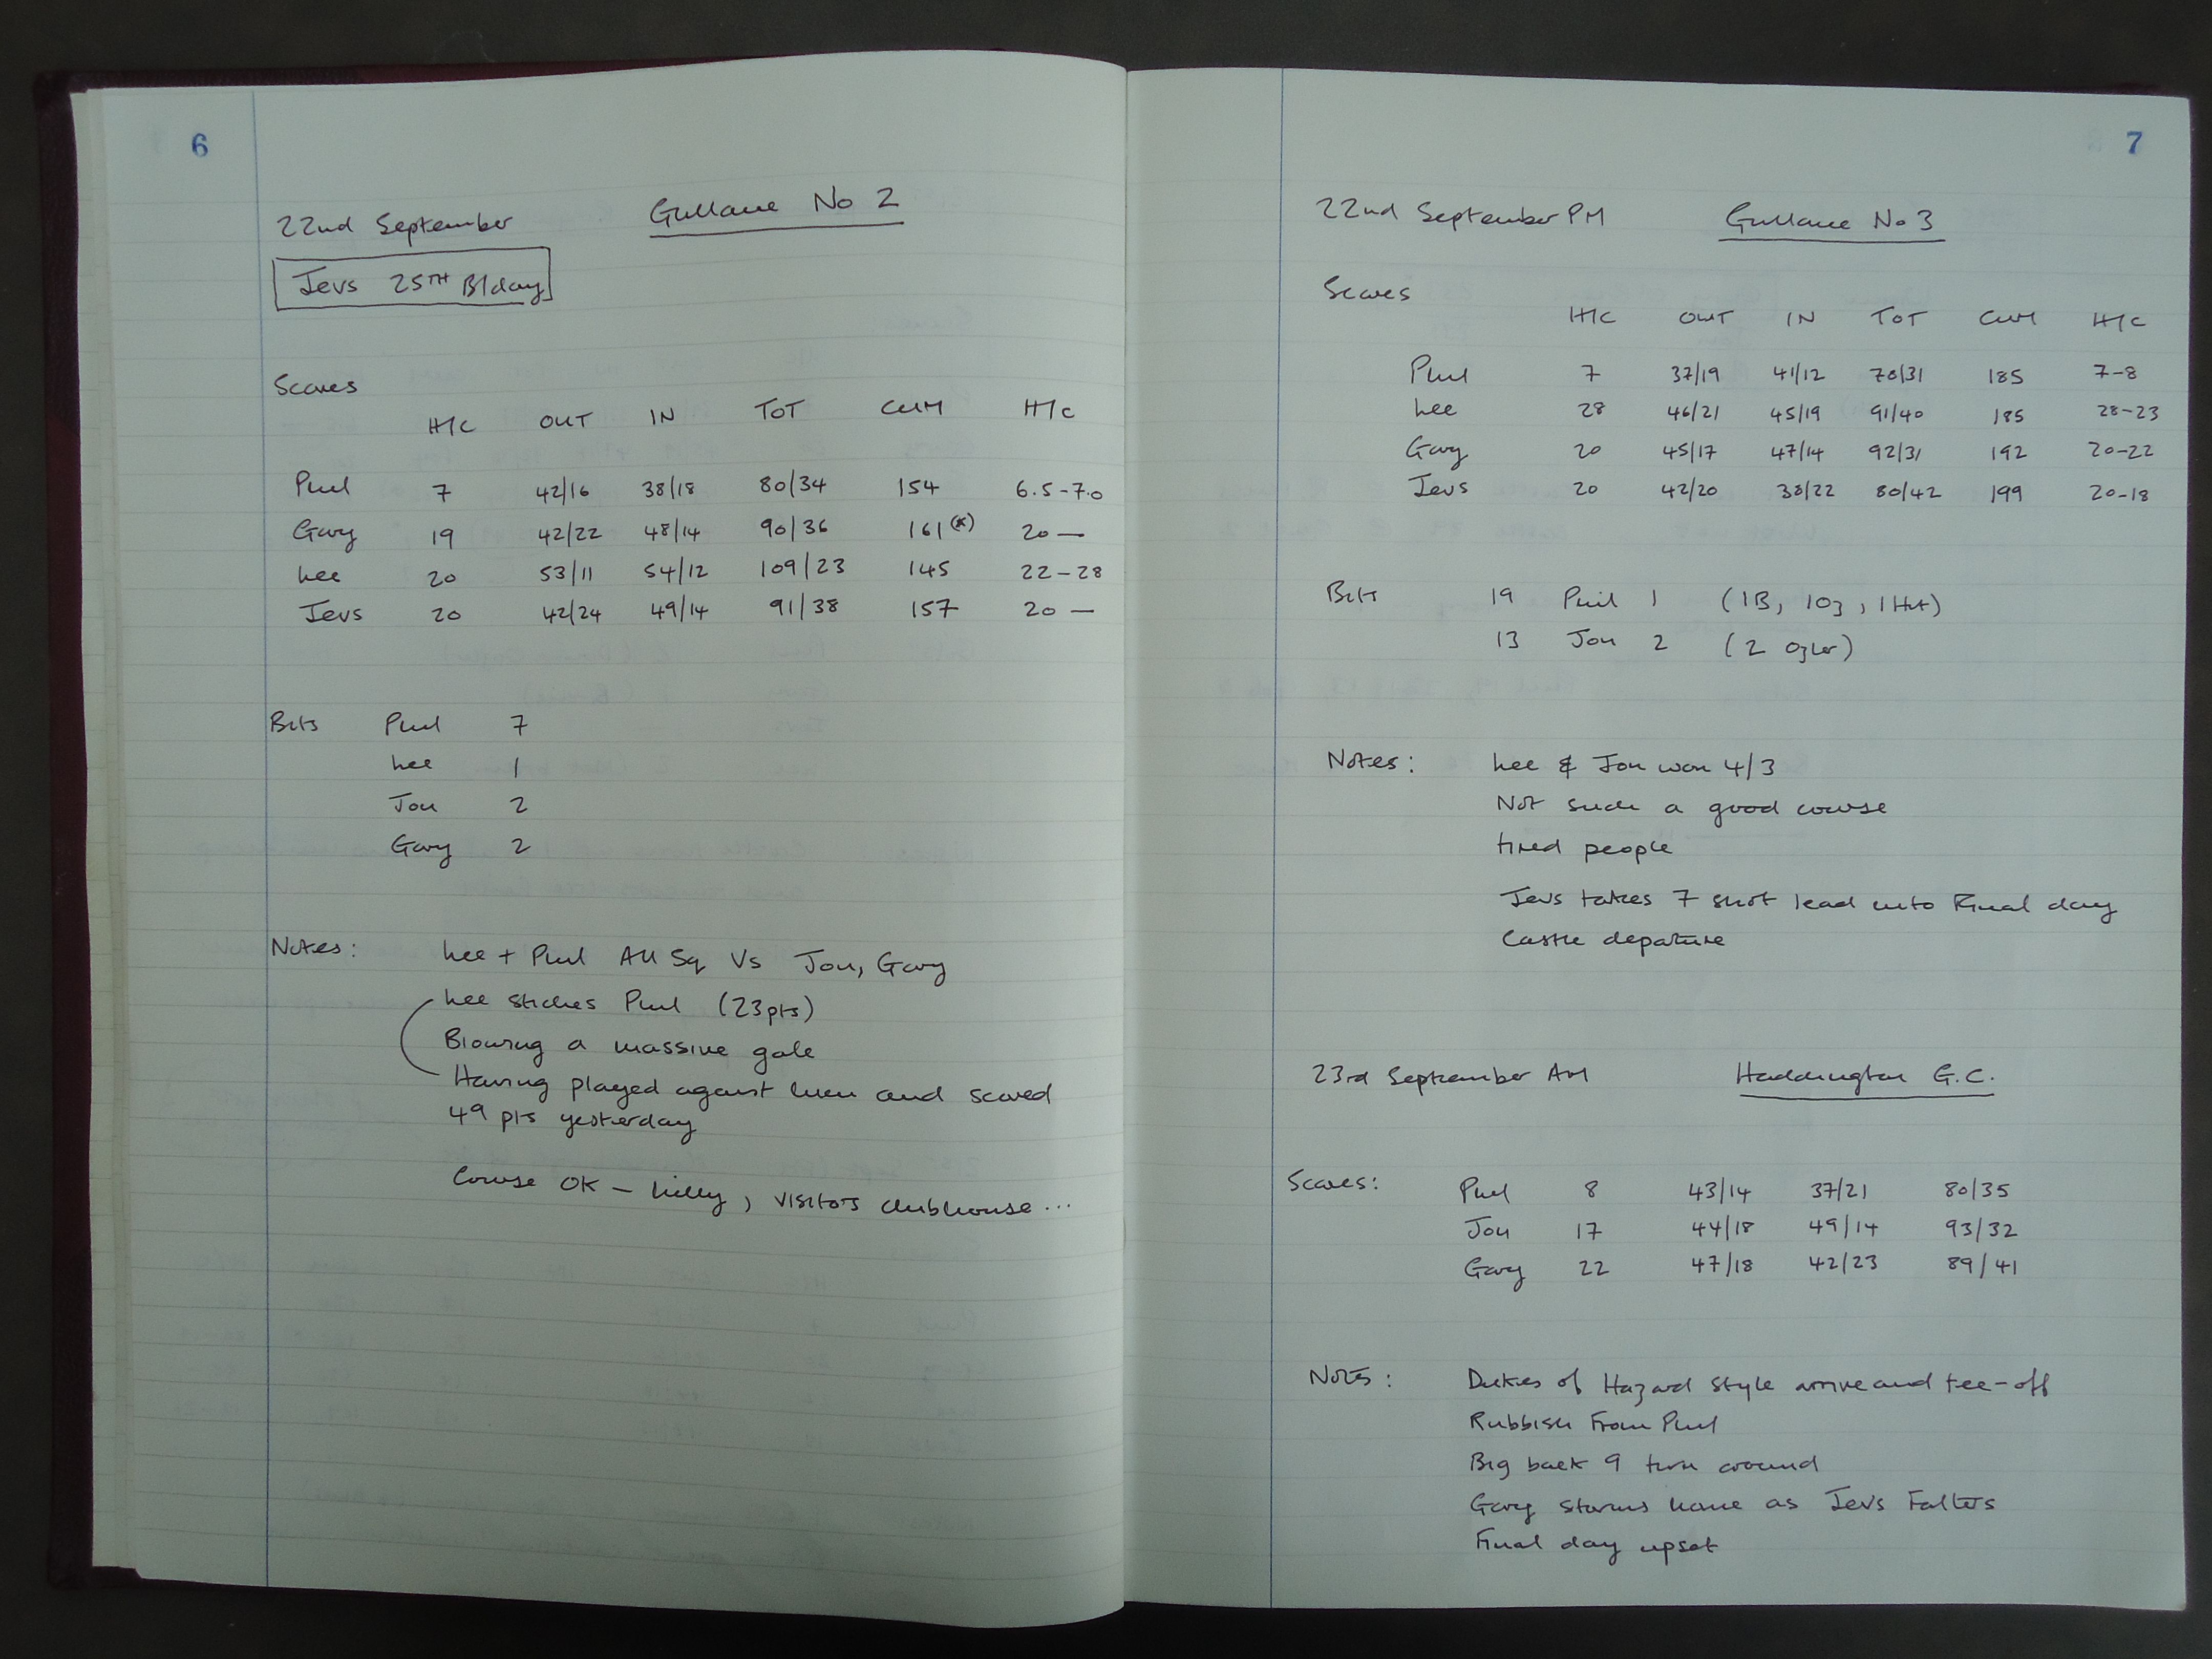 6
22nd September Gullane No 2
Jevs 25TH B/day
Scores
H/C OUT IN TOT CUM H/C
Phil 7 42/16 38/18 80/34 154 6.5-7.0
Gary 19 42/22 48/14 90/36 161(*) 20 —
Lee 20 53/11 54/12 109/23 145 22-28
Jevs 20 42/24 49/14 91/38 157 20 —
Bits Phil 7
Lee 1
Jon 2
Gary 2
Notes: Lee + Phil All Sq Vs Jon, Gary
Lee stiches Phil (23pts)
Blowing a massive gale
Having played against him and scored
49 pts yesterday
Course OK - hilly, visitors clubhouse ...
7
22nd September PM Gullane No 3
Scores
H/C OUT IN TOT CUM H/C
Phil 7 37/19 41/12 78/31 185 7-8
Lee 28 46/21 45/19 91/40 185 28-23
Gary 20 45/17 47/14 92/31 192 20-22
Jevs 20 42/20 38/22 80/42 199 20-18
Bits 19 Phil 1 (1B, 1Oz, 1Hut)
13 Jon 2 (2 Ozler)
Notes: Lee & Jon won 4/3
Not such a good course
tired people
Jevs takes 7 shot lead into Final day
Castle depature
23rd September AM Haddington G.C.
Scores: Phil 8 43/14 37/21 80/35
Jon 17 44/18 49/14 93/32
Gary 22 47/18 42/23 89/41
Notes: Dukies of Hazard style arrive and tee-off
Rubbish From Phil
Big back 9 turn around
Gary storms home as Jevs Falters
Final day upset